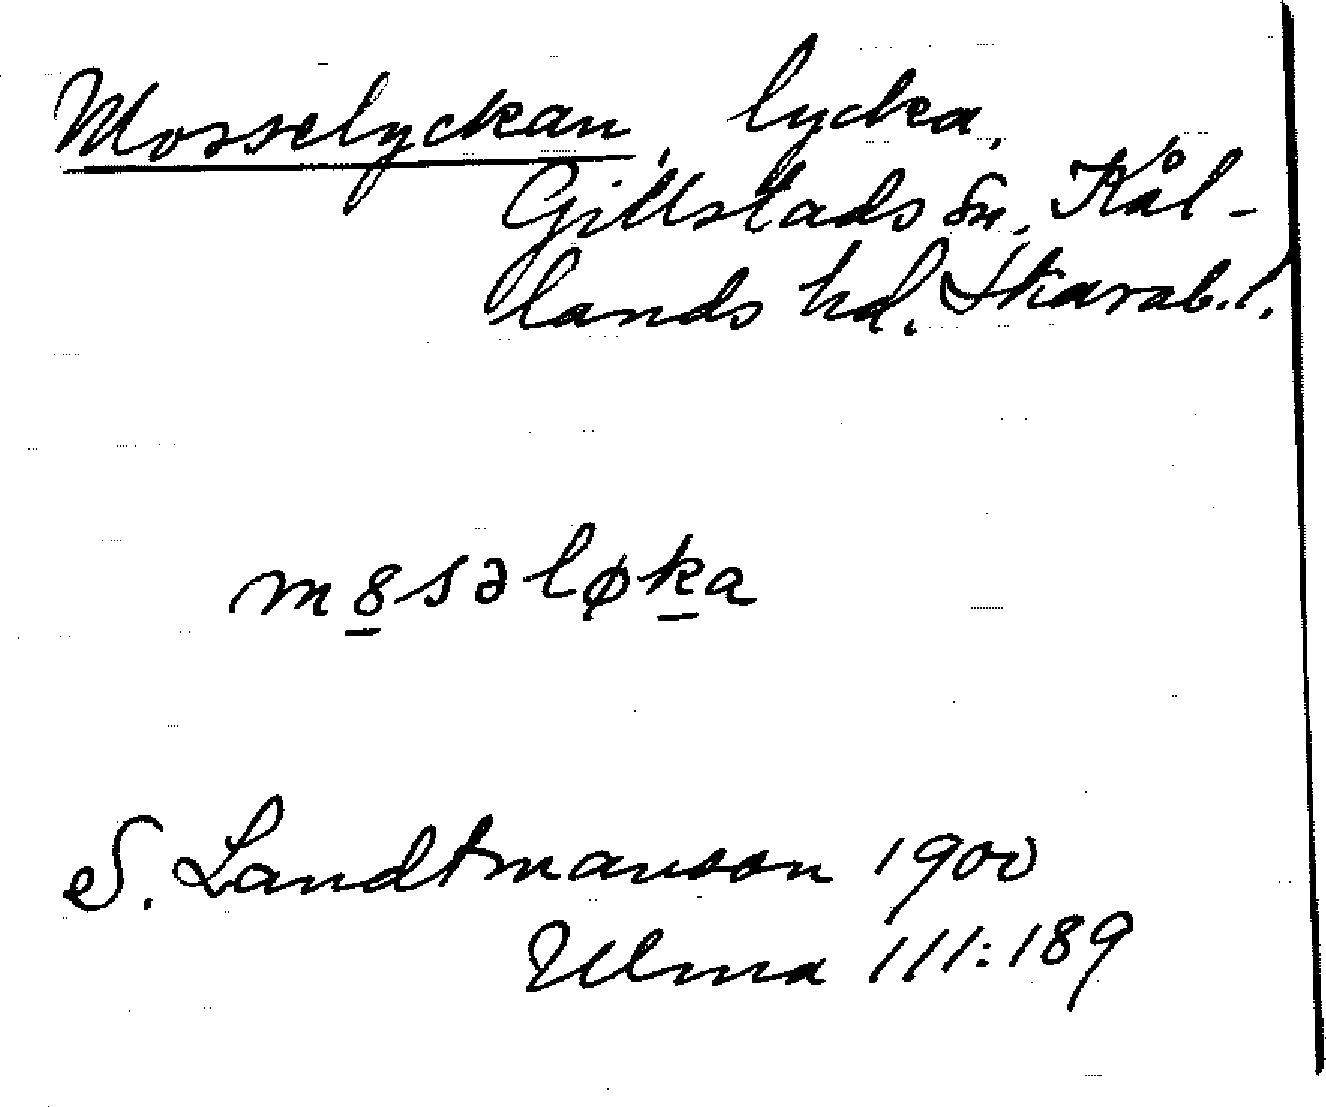 Mosselyckan, lycka,
Gillstads sn, Kål-
lands hd. Skarab.l.
m8səløka
S. Landtmanson 1900
Ulma 111:189